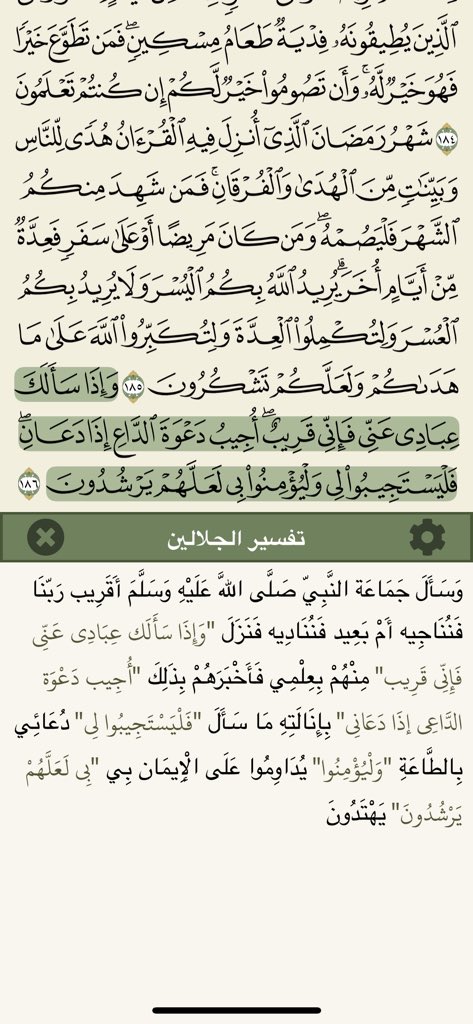 ٱلَّذِينَ يُطِيقُونَهُۥ فِدْيَةٌ طَعَامُ مِسْكِينٍۖ فَمَن تَطَوَّعَ خَيْرًا
فَهُوَ خَيْرٌ لَّهُۥۚ وَأَن تَصُومُوا۟ خَيْرٌ لَّكُمْ إِن كُنتُمْ تَعْلَمُونَ
١٨٤ شَهْرُ رَمَضَانَ ٱلَّذِىٓ أُنزِلَ فِيهِ ٱلْقُرْءَانُ هُدًى لِّلنَّاسِ
وَبَيِّنَٰتٍ مِّنَ ٱلْهُدَىٰ وَٱلْفُرْقَانِۚ فَمَن شَهِدَ مِنكُمُ
ٱلشَّهْرَ فَلْيَصُمْهُۖ وَمَن كَانَ مَرِيضًا أَوْ عَلَىٰ سَفَرٍ فَعِدَّةٌ
مِّنْ أَيَّامٍ أُخَرَۗ يُرِيدُ ٱللَّهُ بِكُمُ ٱلْيُسْرَ وَلَا يُرِيدُ بِكُمُ
ٱلْعُسْرَ وَلِتُكْمِلُوا۟ ٱلْعِدَّةَ وَلِتُكَبِّرُوا۟ ٱللَّهَ عَلَىٰ مَا
هَدَىٰكُمْ وَلَعَلَّكُمْ تَشْكُرُونَ ١٨٥ وَإِذَا سَأَلَكَ
عِبَادِى عَنِّى فَإِنِّى قَرِيبٌۖ أُجِيبُ دَعْوَةَ ٱلدَّاعِ إِذَا دَعَانِۖ
فَلْيَسْتَجِيبُوا۟ لِى وَلْيُؤْمِنُوا۟ بِى لَعَلَّهُمْ يَرْشُدُونَ ١٨٦
تفسير الجلالين
وَسَأَلَ جَمَاعَة النَّبِيّ صَلَّى اللَّه عَلَيْهِ وَسَلَّمَ أَقَرِيب رَبّنَا
فَنُنَاجِيه أَمْ بَعِيد فَنُنَادِيه فَنَزَلَ "وَإِذَا سَأَلَك عِبَادِي عَنِّي
فَإِنِّي قَرِيب" مِنْهُمْ بِعِلْمِي فَأَخْبَرَهُمْ بِذَلِكَ "أُجِيب دَعْوَة
الدَّاعِي إذَا دَعَانِي" بِإِنَالَتِهِ مَا سَأَلَ "فَلْيَسْتَجِيبُوا لِي" دُعَائِي
بِالطَّاعَةِ "وَلْيُؤْمِنُوا" يُدَاوِمُوا عَلَى الْإِيمَان بِي "بِي لَعَلَّهُمْ
يَرْشُدُونَ" يَهْتَدُونَ